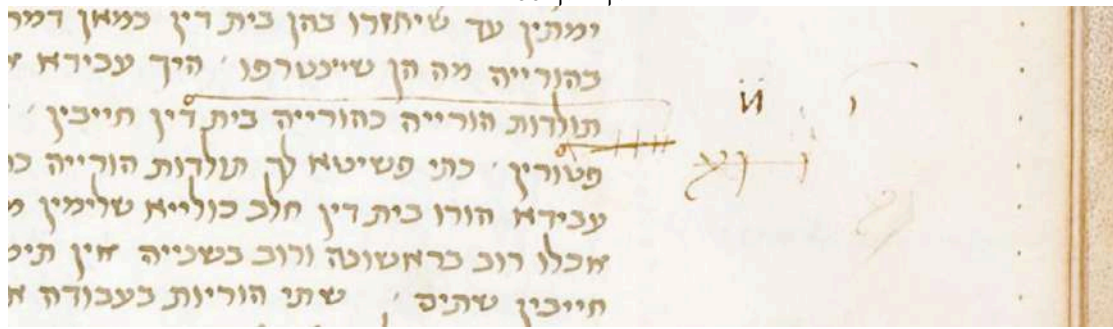 ימתין עד שיחזרו בהן בית דין כמאן דמר
בהורייה מה הן שייכטרפו היך עבידא
תולדות הורייה כהורייה בית דין חייבין
פטורין כתי פשיטא לך תולדות הורייה
עבידא הורו בית דין חלב כולייא שלימין
אכלו רוב בראשונה ורוב בשנייה אין
חייבין שתים שתי הוריות בעבודה